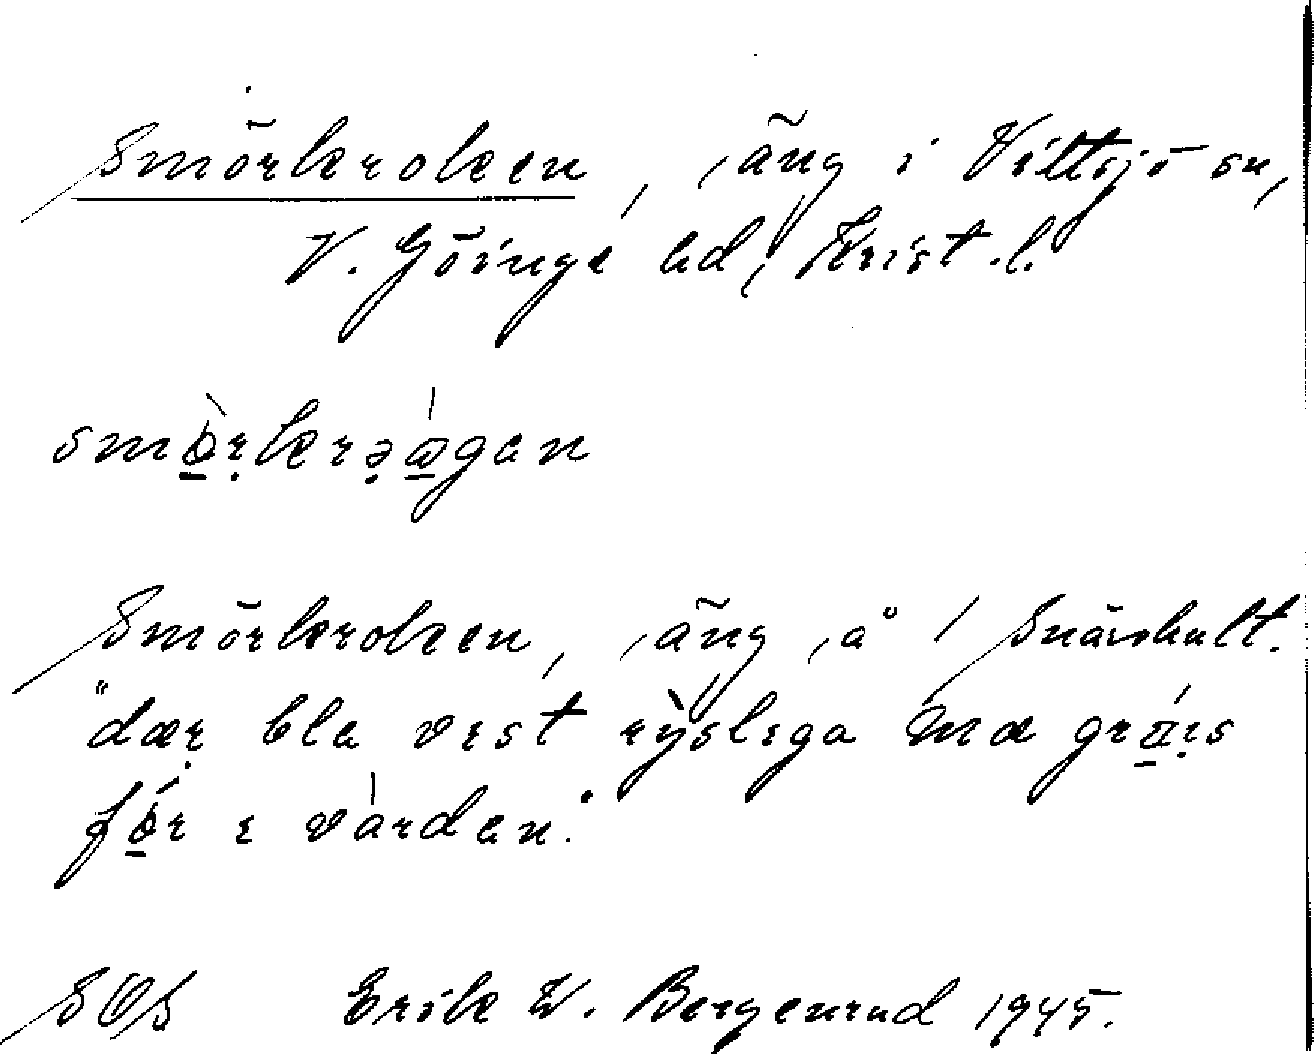 Smörkroken, äng i Vittsjö sn,
V. Göinge hd, Krist. l.
smörkrågan
Smörkroken, äng å / Snärshult.
"dær ble vest rysliga mæ gräis
för i vården."
SOS Erik W. Bergenrud 1945.